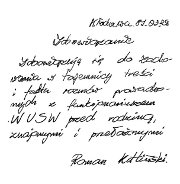 Kraków, 87.03.28
Zobowiązanie
Zobowiązuję się do zacho-
wania w tajemnicy treści
i faktu rozmów prowadzo-
nych z funkcjonariuszem
WUSW przed rodziną,
znajomymi i przełożonymi.
Roman